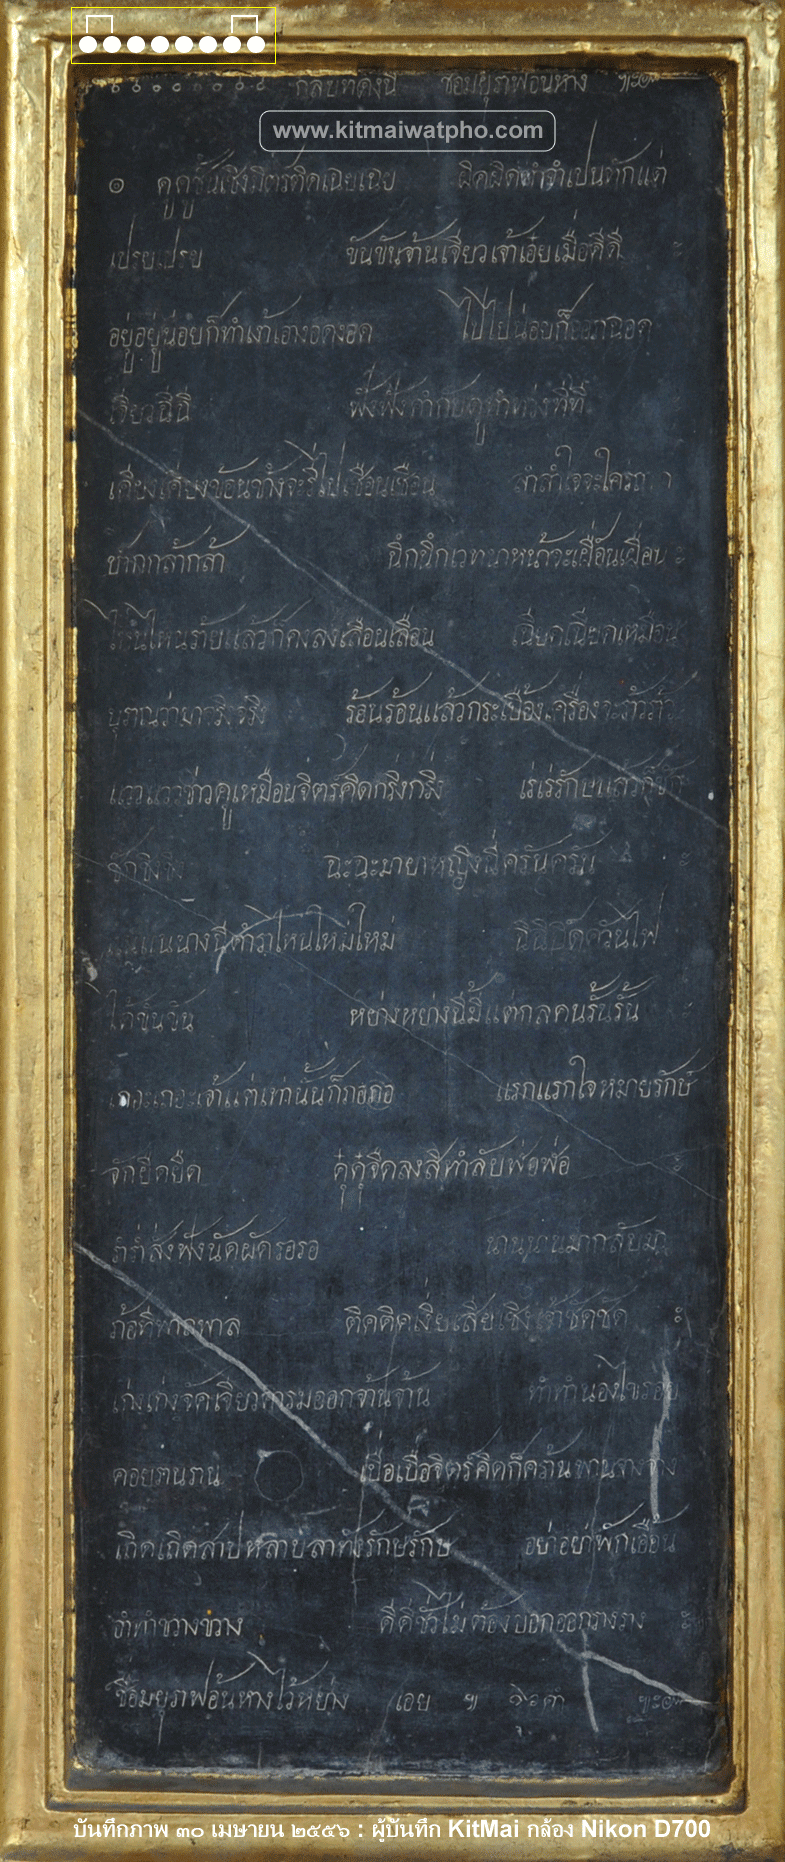 กลบทดังนี้ ชื่อมยุราฟ้อนหาง ฯะ๛
www.kitmaiwatpho.com
๑ ดูดูชั้นเชิงมิตรคิดเฉยเฉย ผิดผิดทำจำเปนทักแต่
เปรยเปรย ขันขันจ้านเจียวเจ้าเอ๋ยเมื่อดีดี ะ
อยู่อยู่น่อยก็ทำเง้าเองอดงอด ไปไปน่อยก็ออดฉอด
เจียวฉี่ฉี่ ฟั่งฟั่งคำกับดูทำท่วงทีที
เคียงเคียงข้อนขว้างจะรี่ไปเชือนเชือน ลำลำใจจะใคร่
ซ้ากกล้ากล้า นึกนึกเวทนาหน้าจะเฝื่อนเฝื่อน ะ
ไหนไหนร้ายแล้วก็คงลงเลื่อนเลื่อน เฉียดเฉียดเหมือน
บุราณว่ามาจริงจริง ร้อนร้อนแล้วกระเบื้องเครื่องจะร้าวร้าว
แววแววข่าวดูเหมือนจิตรคิดกริ่งกริ่ง เร่เร่รักษแล้วก็ชัก
ชักชิงชิง ฉะฉะมายาหญิงฉี่ครันครัน ะ
แสนแสนนางนี่ตำราไหนใหม่ใหม่ ควันไฟ
ได้ขันขัน หย่างหย่างนี้มีแต่กลคนรั้นรั้น ะ
เถอะเถอะเจ้าแต่เท่านั้นก็กอกอ แรกแรกใจหมายรักษ์
จักยืดยืด ดุ๋ดุ๋จืดลงสิทำลับพ่อพ่อ ะ
ร่ำร่ำสั่งฟังนัดผัดรอรอ นานนานมากลับมา
ภ้อที่พาลพาล ติดติดเงี่ยเสียเชิงเจ้าชัดชัด ะ
เก่งเก่งจัดเจียวคารมออกจ้านจ้าน ทำทำน่องไขรอย
คอยรานราน เบื่อเบื่อจิตร์คิดก็คร้านพานจางจาง
เถิดเถิดสาปหลาบลาทั้งรักษรักษ อย่าอย่าพักเอื้อน
อำทำขวางขวาง ดีดีชั่วไม่ต้องบอกออกรางราง ะ
ชื่อมยุราฟ้อนหางไว้หย่าง เอย ฯ
บันทึกภาพ ๓๐ เมษายน ๒๕๕๖ : ผู้บันทึก KitMai กล้อง Nikon D700